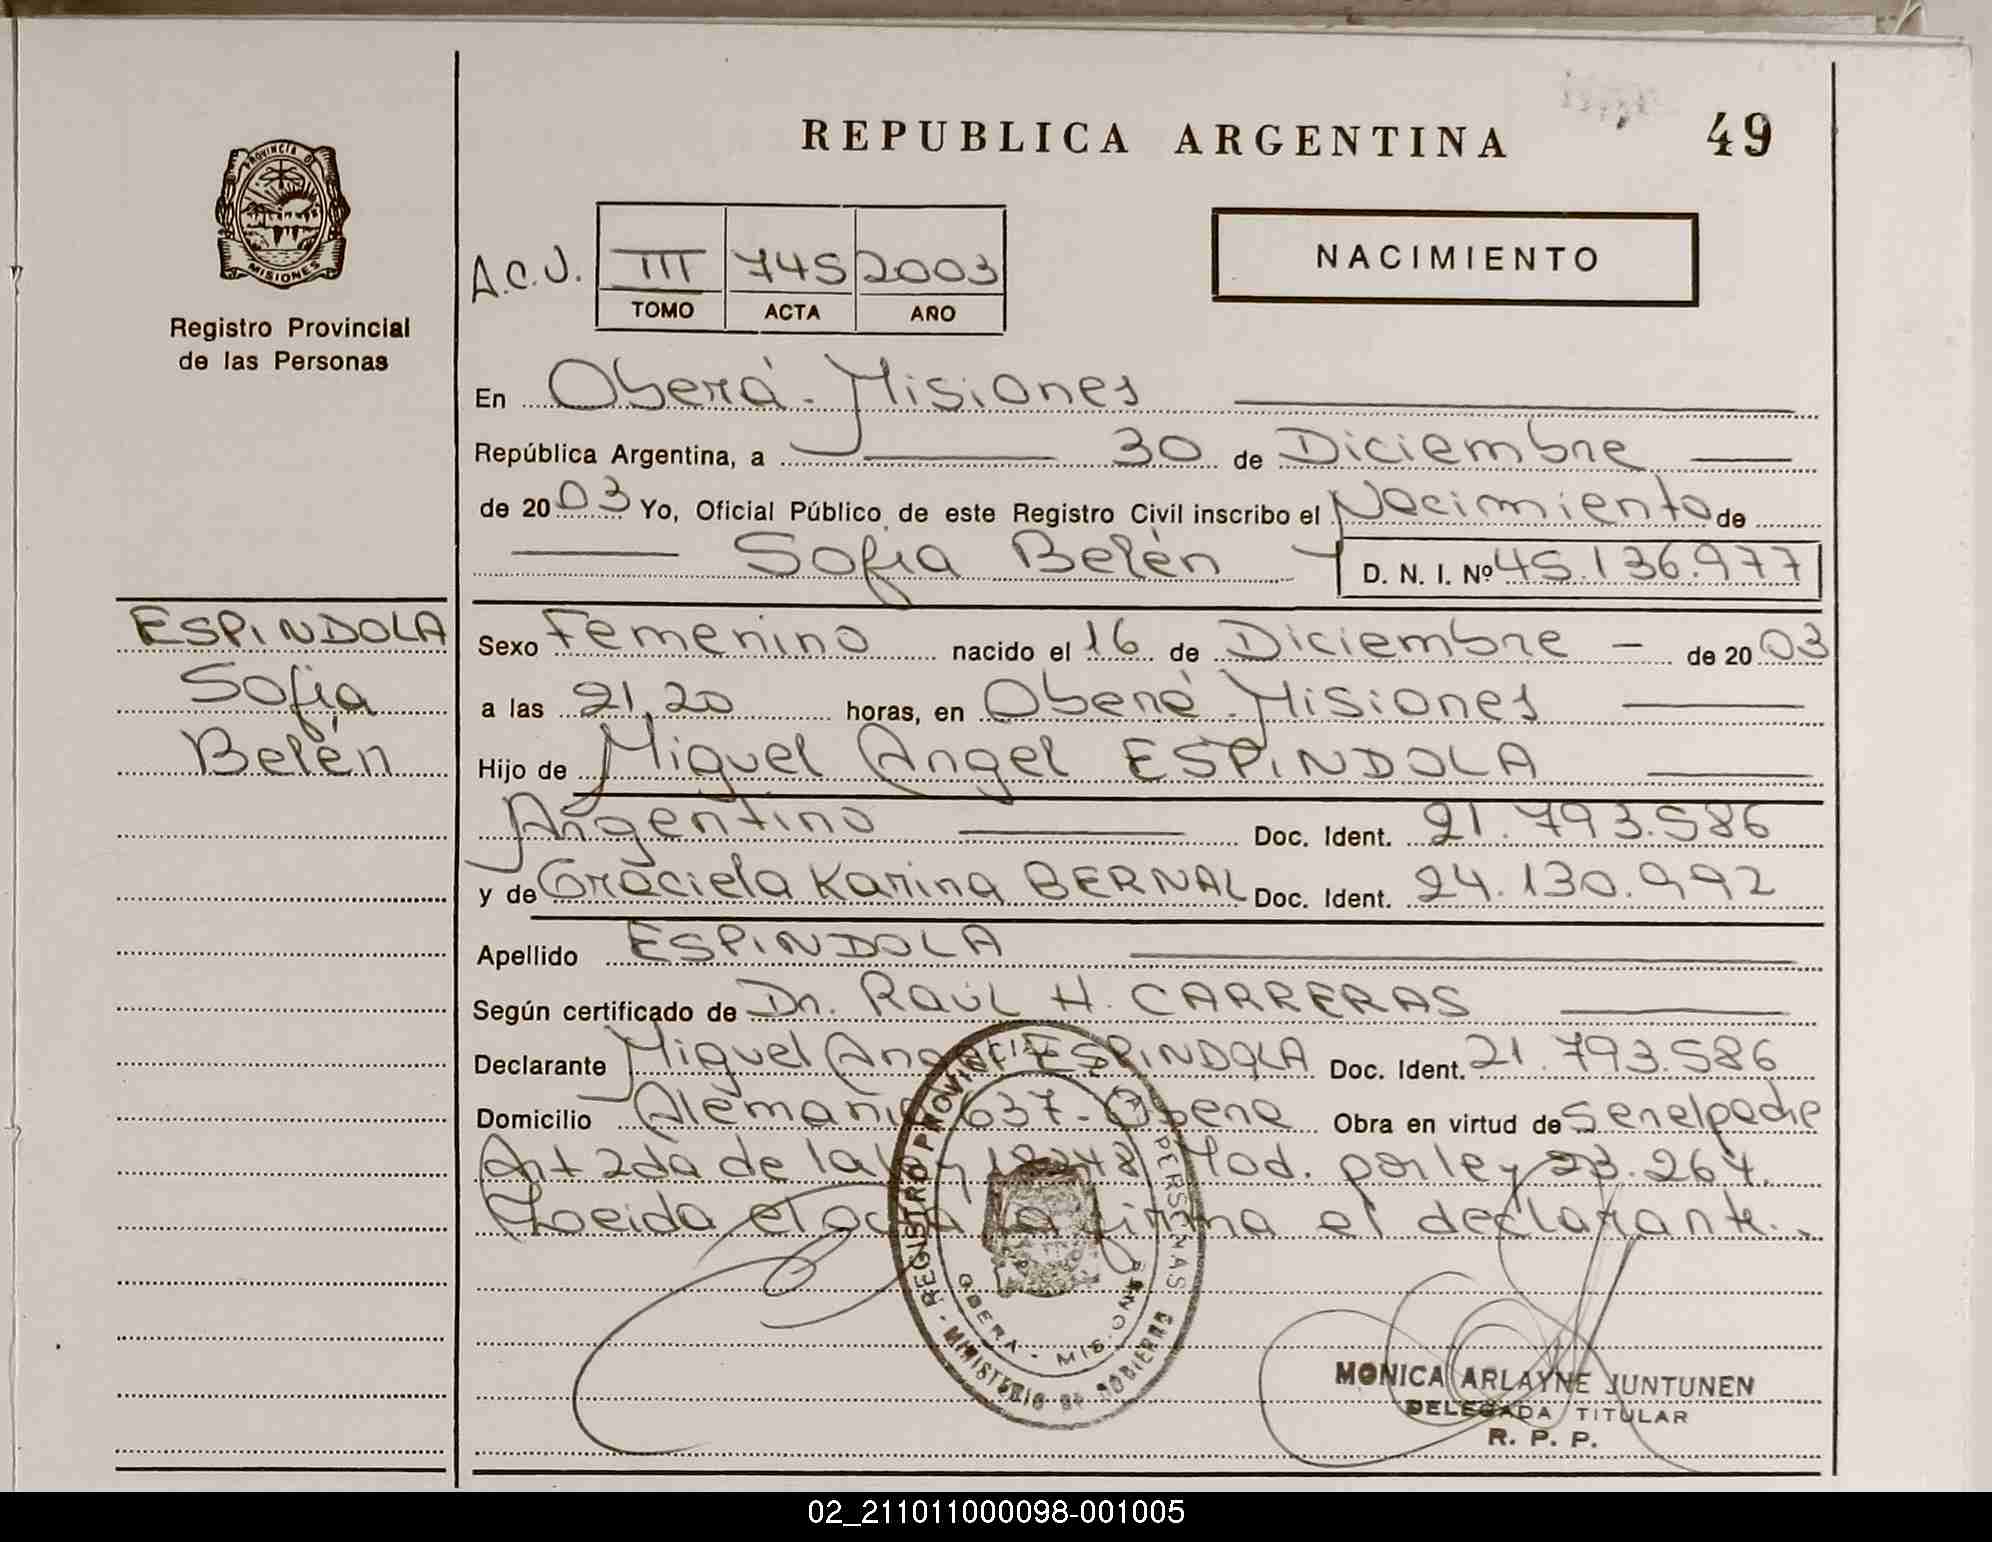 REPUBLICA ARGENTINA
49
PROVINCIA DE
MISIONES
Registro Provincial
de las Personas
A.C.J. III 745 2003
TOMO ACTA AÑO
NACIMIENTO
En Oberá - Misiones
República Argentina, a 30 de Diciembre
de 2003 Yo, Oficial Público de este Registro Civil inscribo el Nacimiento de
Sofia Belén D. N. I. Nº 45.136.977
ESPINDOLA
Sofia
Belén
Sexo Femenino nacido el 16 de Diciembre - de 2003
a las 21,20 horas, en Oberá - Misiones
Hijo de Miguel Angel ESPINDOLA
Argentino Doc. Ident. 21.793.586
y de Graciela Karina BERNAL Doc. Ident. 24.130.992
Apellido ESPINDOLA
Según certificado de Dr. RAÚL H. CARRERAS
Declarante Miguel Angel ESPINDOLA Doc. Ident. 21.793.586
Domicilio Alemania 637 - Oberá Obra en virtud de Ser el padre
Art 2do de la ley 18248 Mod. por ley 23.264.
Leida el acta la firma el declarante.
REGISTRO PROVINCIAL PERSONAS
OBERA - MISIONES
MINISTERIO DE GOBIERNO
MONICA ARLAYNE JUNTUNEN
DELEGADA TITULAR
R. P. P.
02_211011000098-001005